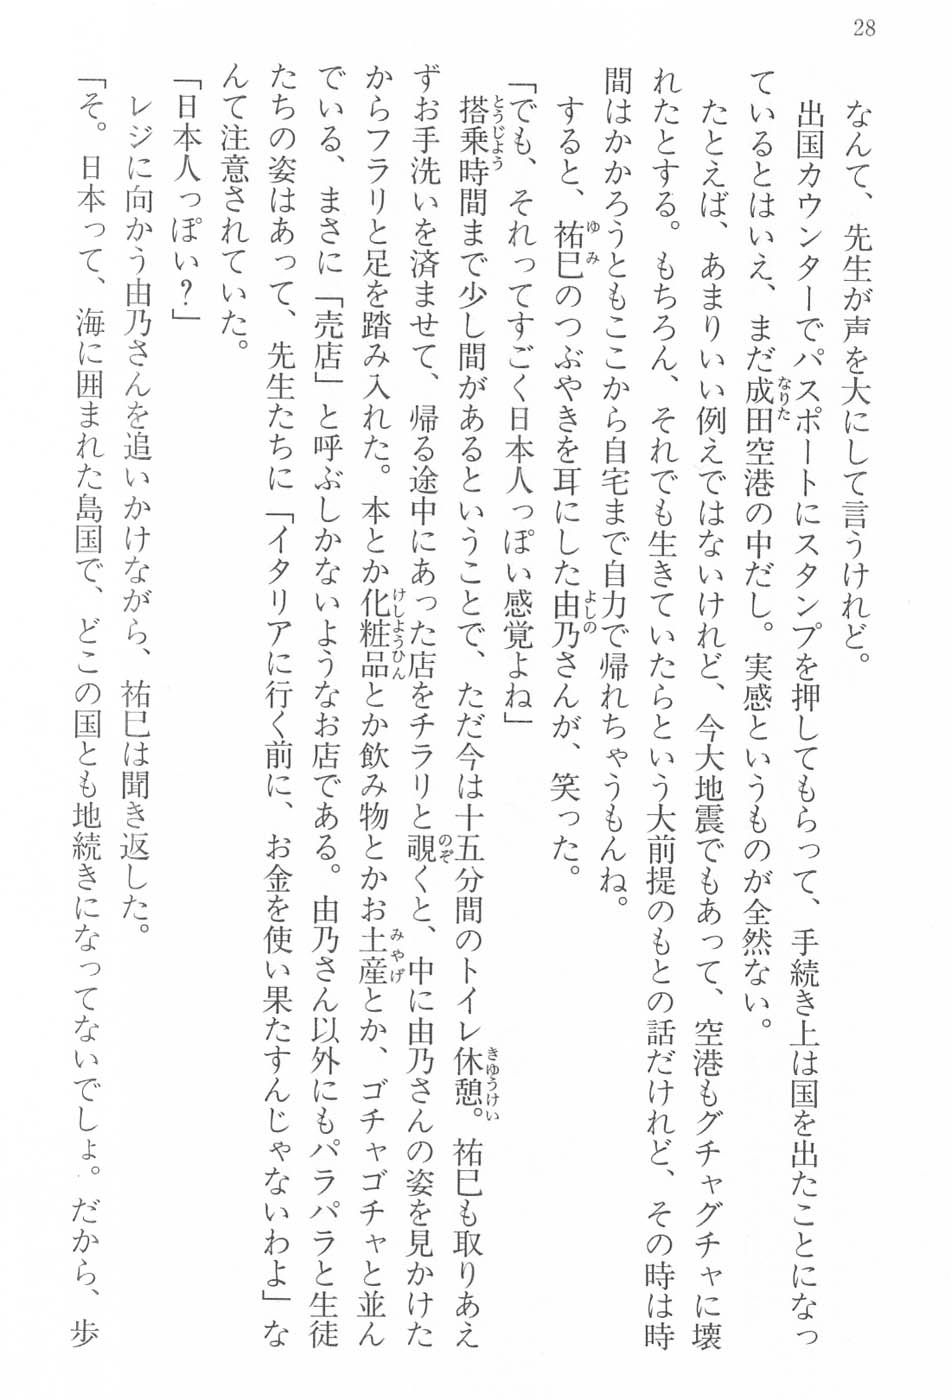 28
なんて、先生が声を大にして言うけれど。
出国カウンターでパスポートにスタンプを押してもらって、手続き上は国を出たことになっ
ているとはいえ、まだ成田空港の中だし。実感というものが全然ない。
たとえば、あまりいい例えではないけれど、今大地震でもあって、空港もグチャグチャに壊
れたとする。もちろん、それでも生きていたらという大前提のもとの話だけれど、その時は時
間はかかろうともここから自宅まで自力で帰れちゃうもんね。
すると、祐巳のつぶやきを耳にした由乃さんが、笑った。
「でも、それってすごく日本人っぽい感覚よね」
搭乗時間まで少し間があるということで、ただ今は十五分間のトイレ休憩。祐巳も取りあえ
ずお手洗いを済ませて、帰る途中にあった店をチラリと覗くと、中に由乃さんの姿を見かけた
からフラリと足を踏み入れた。本とか化粧品とか飲み物とかお土産とか、ゴチャゴチャと並ん
でいる、まさに「売店」と呼ぶしかないようなお店である。由乃さん以外にもパラパラと生徒
たちの姿はあって、先生たちに「イタリアに行く前に、お金を使い果たすんじゃないわよ」な
んて注意されていた。
「日本人っぽい？」
レジに向かう由乃さんを追いかけながら、祐巳は聞き返した。
「そ。日本って、海に囲まれた島国で、どこの国とも地続きになってないでしょ。だから、歩